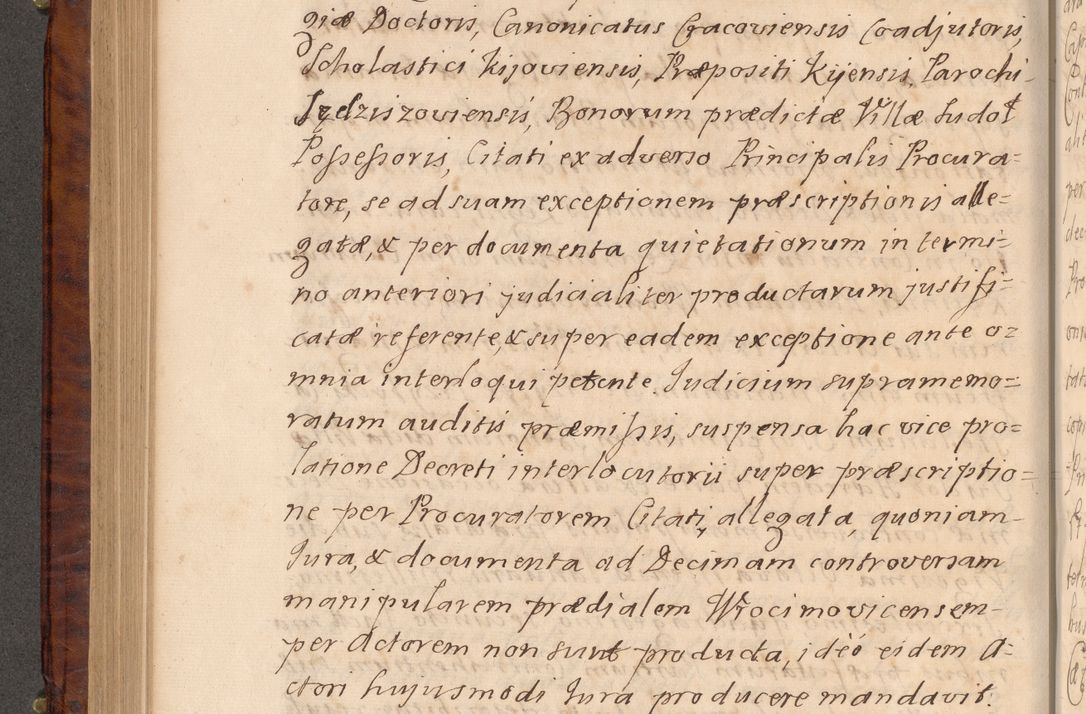 giæ Doctoris, Canonicatus Cracoviensis Coadjutoris,
Scholastici Kijoviensis, Præpositi Kijensis, Parochi
Sędziszoviensis, Bonorum prædictæ Villæ Ludot
Possessoris, Citati ex adverso Principalis Procura=
tore, se ad suam exceptionem præscriptionis alle=
gatæ, & per documenta quietationum in termi=
no anteriori judicialiter productarum justifi=
catæ referente, & super eadem exceptione ante o=
mnia interloqui petente. Judicium supramemo=
ratum auditis præmissis, suspensa hac vice pro=
latione Decreti interlocutorii super præscriptio=
ne per Procuratorem Citati, allegata, quoniam
Jura, & documenta ad Decimam controversam
manipularem prædialem Wrocimovicensem
per Actorem non sunt producta, ideó eidem A=
ctori hujusmodi Jura producere mandavit.